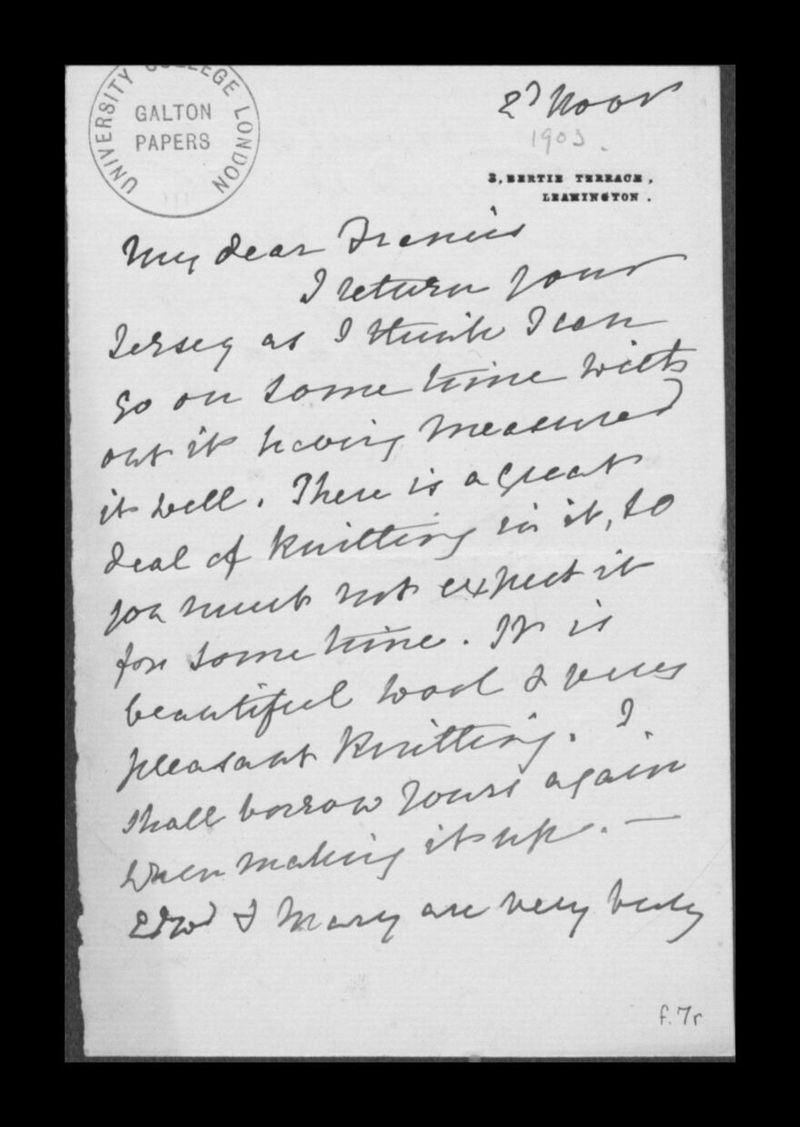 UNIVERSITY COLLEGE LONDON
GALTON
PAPERS
2d Novr
1903.
3, BERTIE TERRACE,
LEAMINGTON.
My dear Francis
I return your
Jersey as I think I can
go on some time with
out it having measured
it well. There is a great
deal of knitting in it, so
you must not expect it
for some time. It is
beautiful wool & very
pleasant Knitting. I
shall borrow yours again
when making it up. —
Edwd & Mary are very busy
f.7r